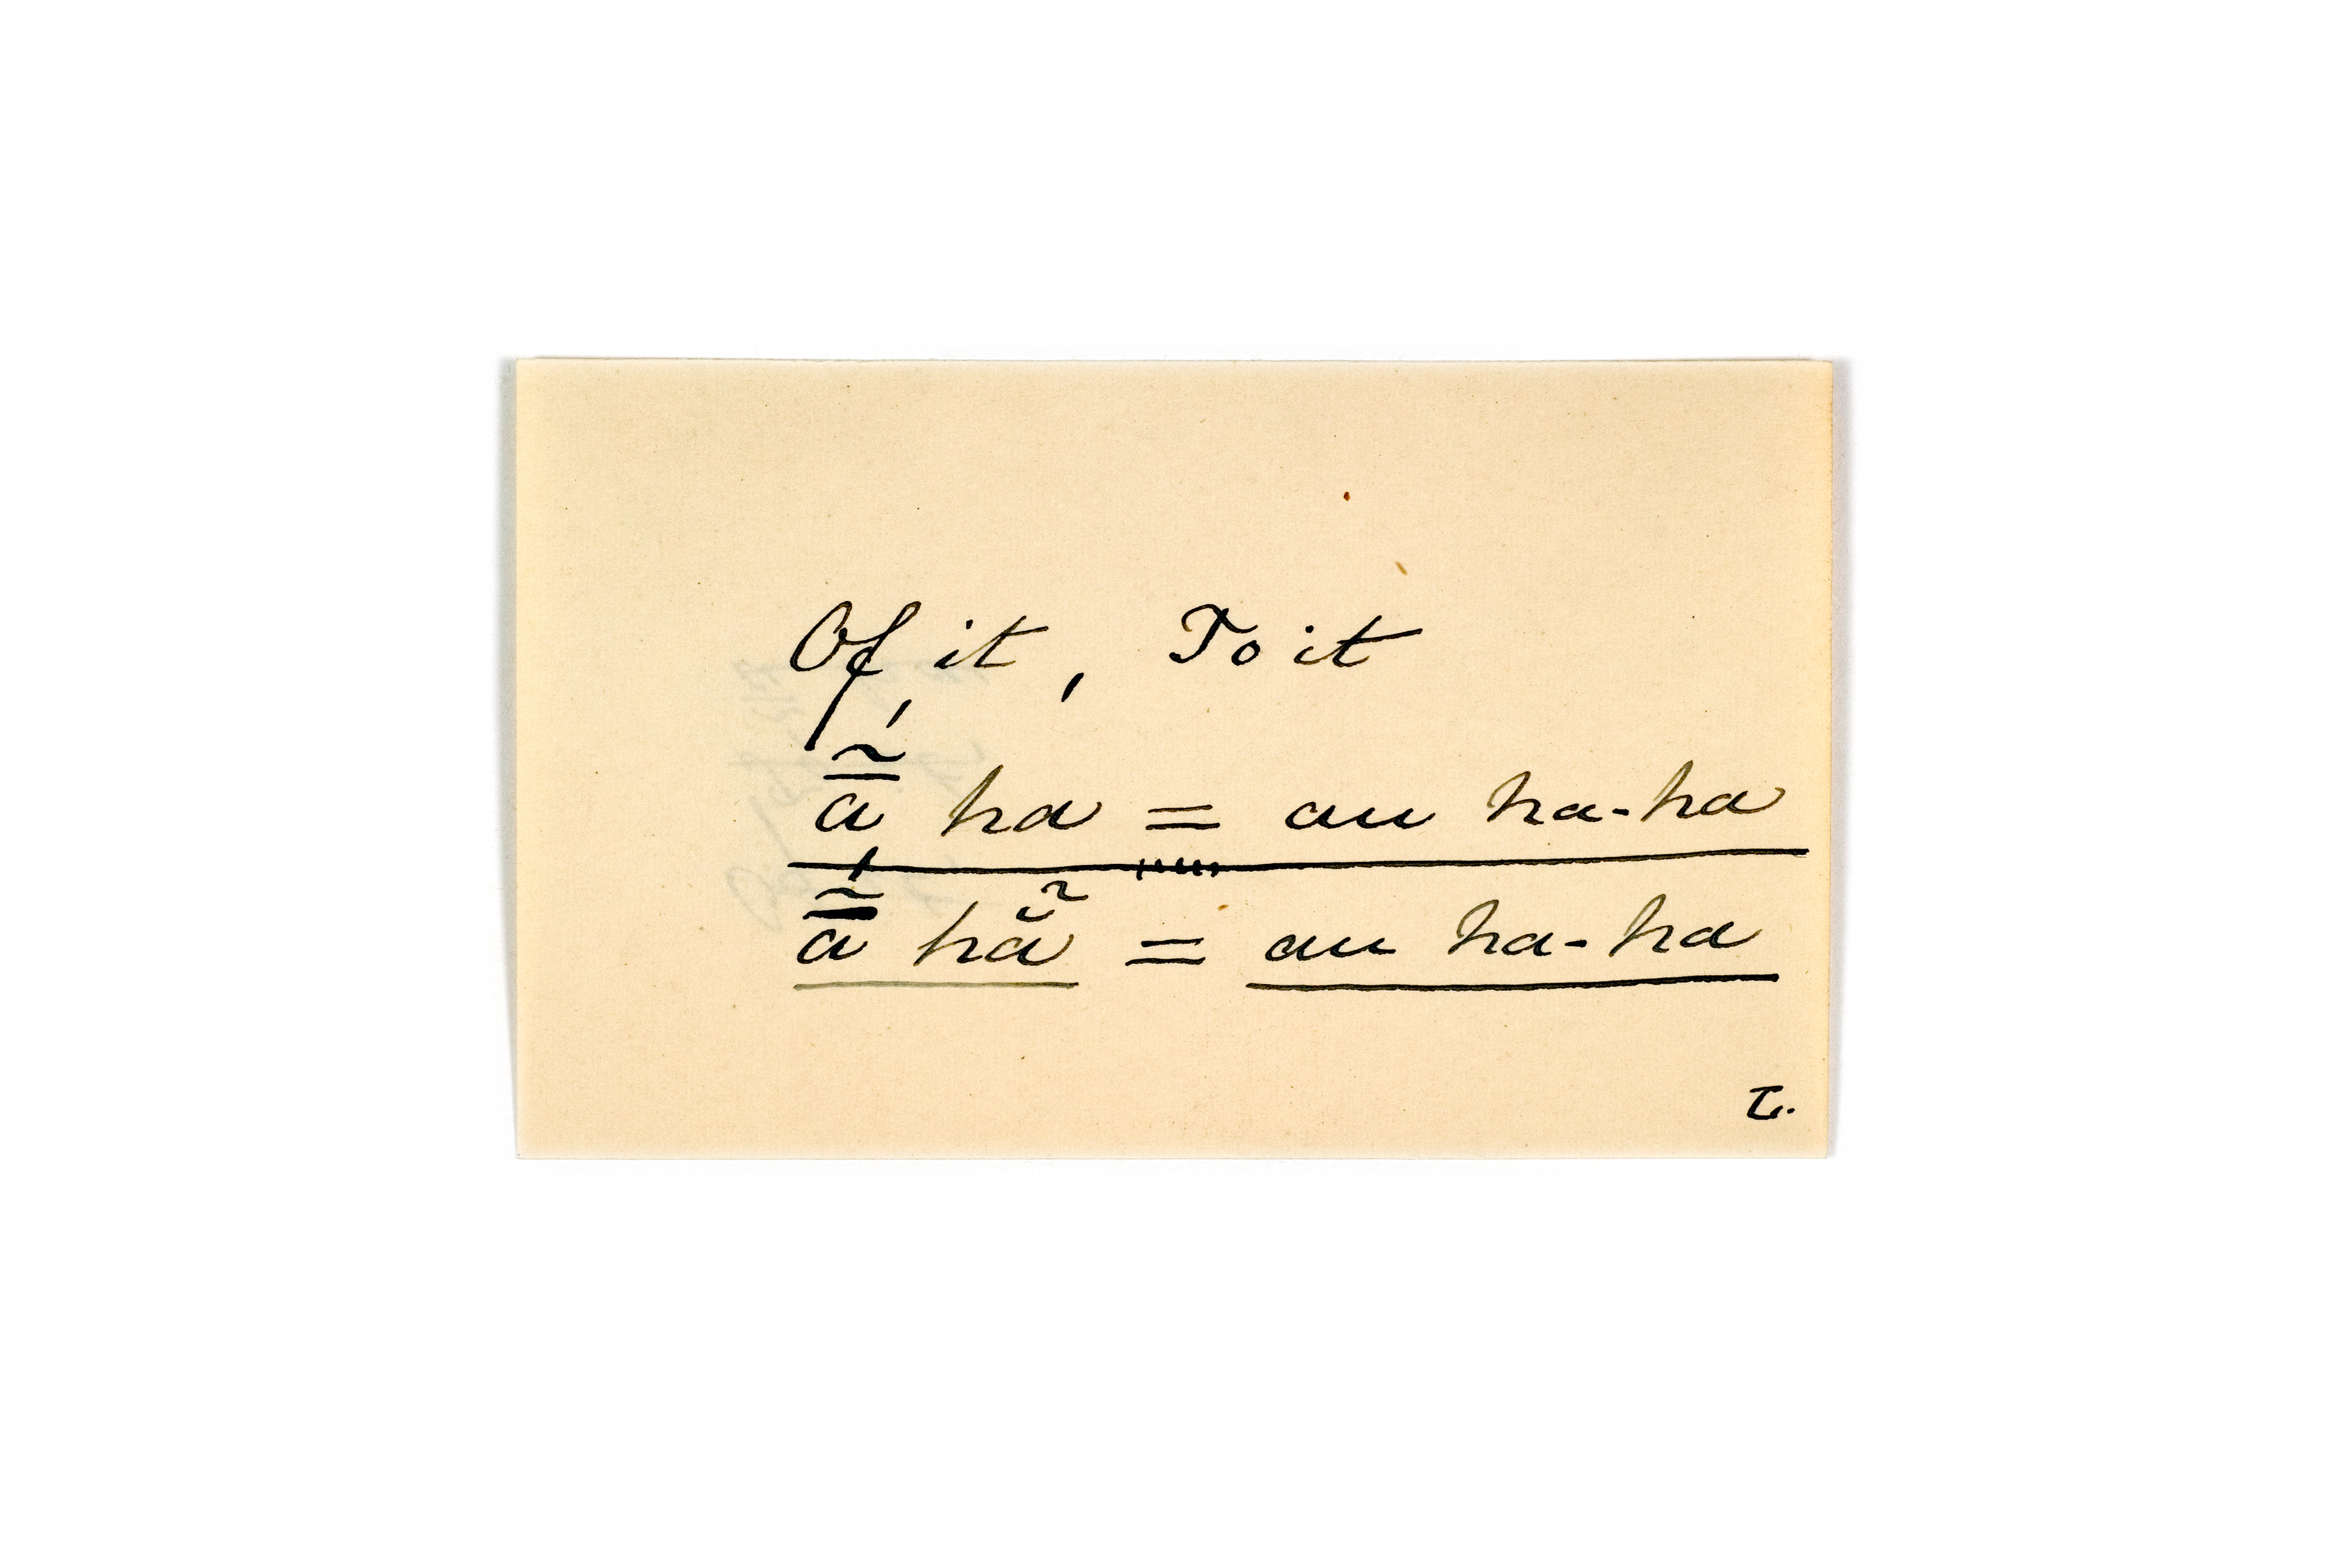 Of it, To it
ā̃́ ha = au ha-ha
ā̃́ hẵ = au ha-ha